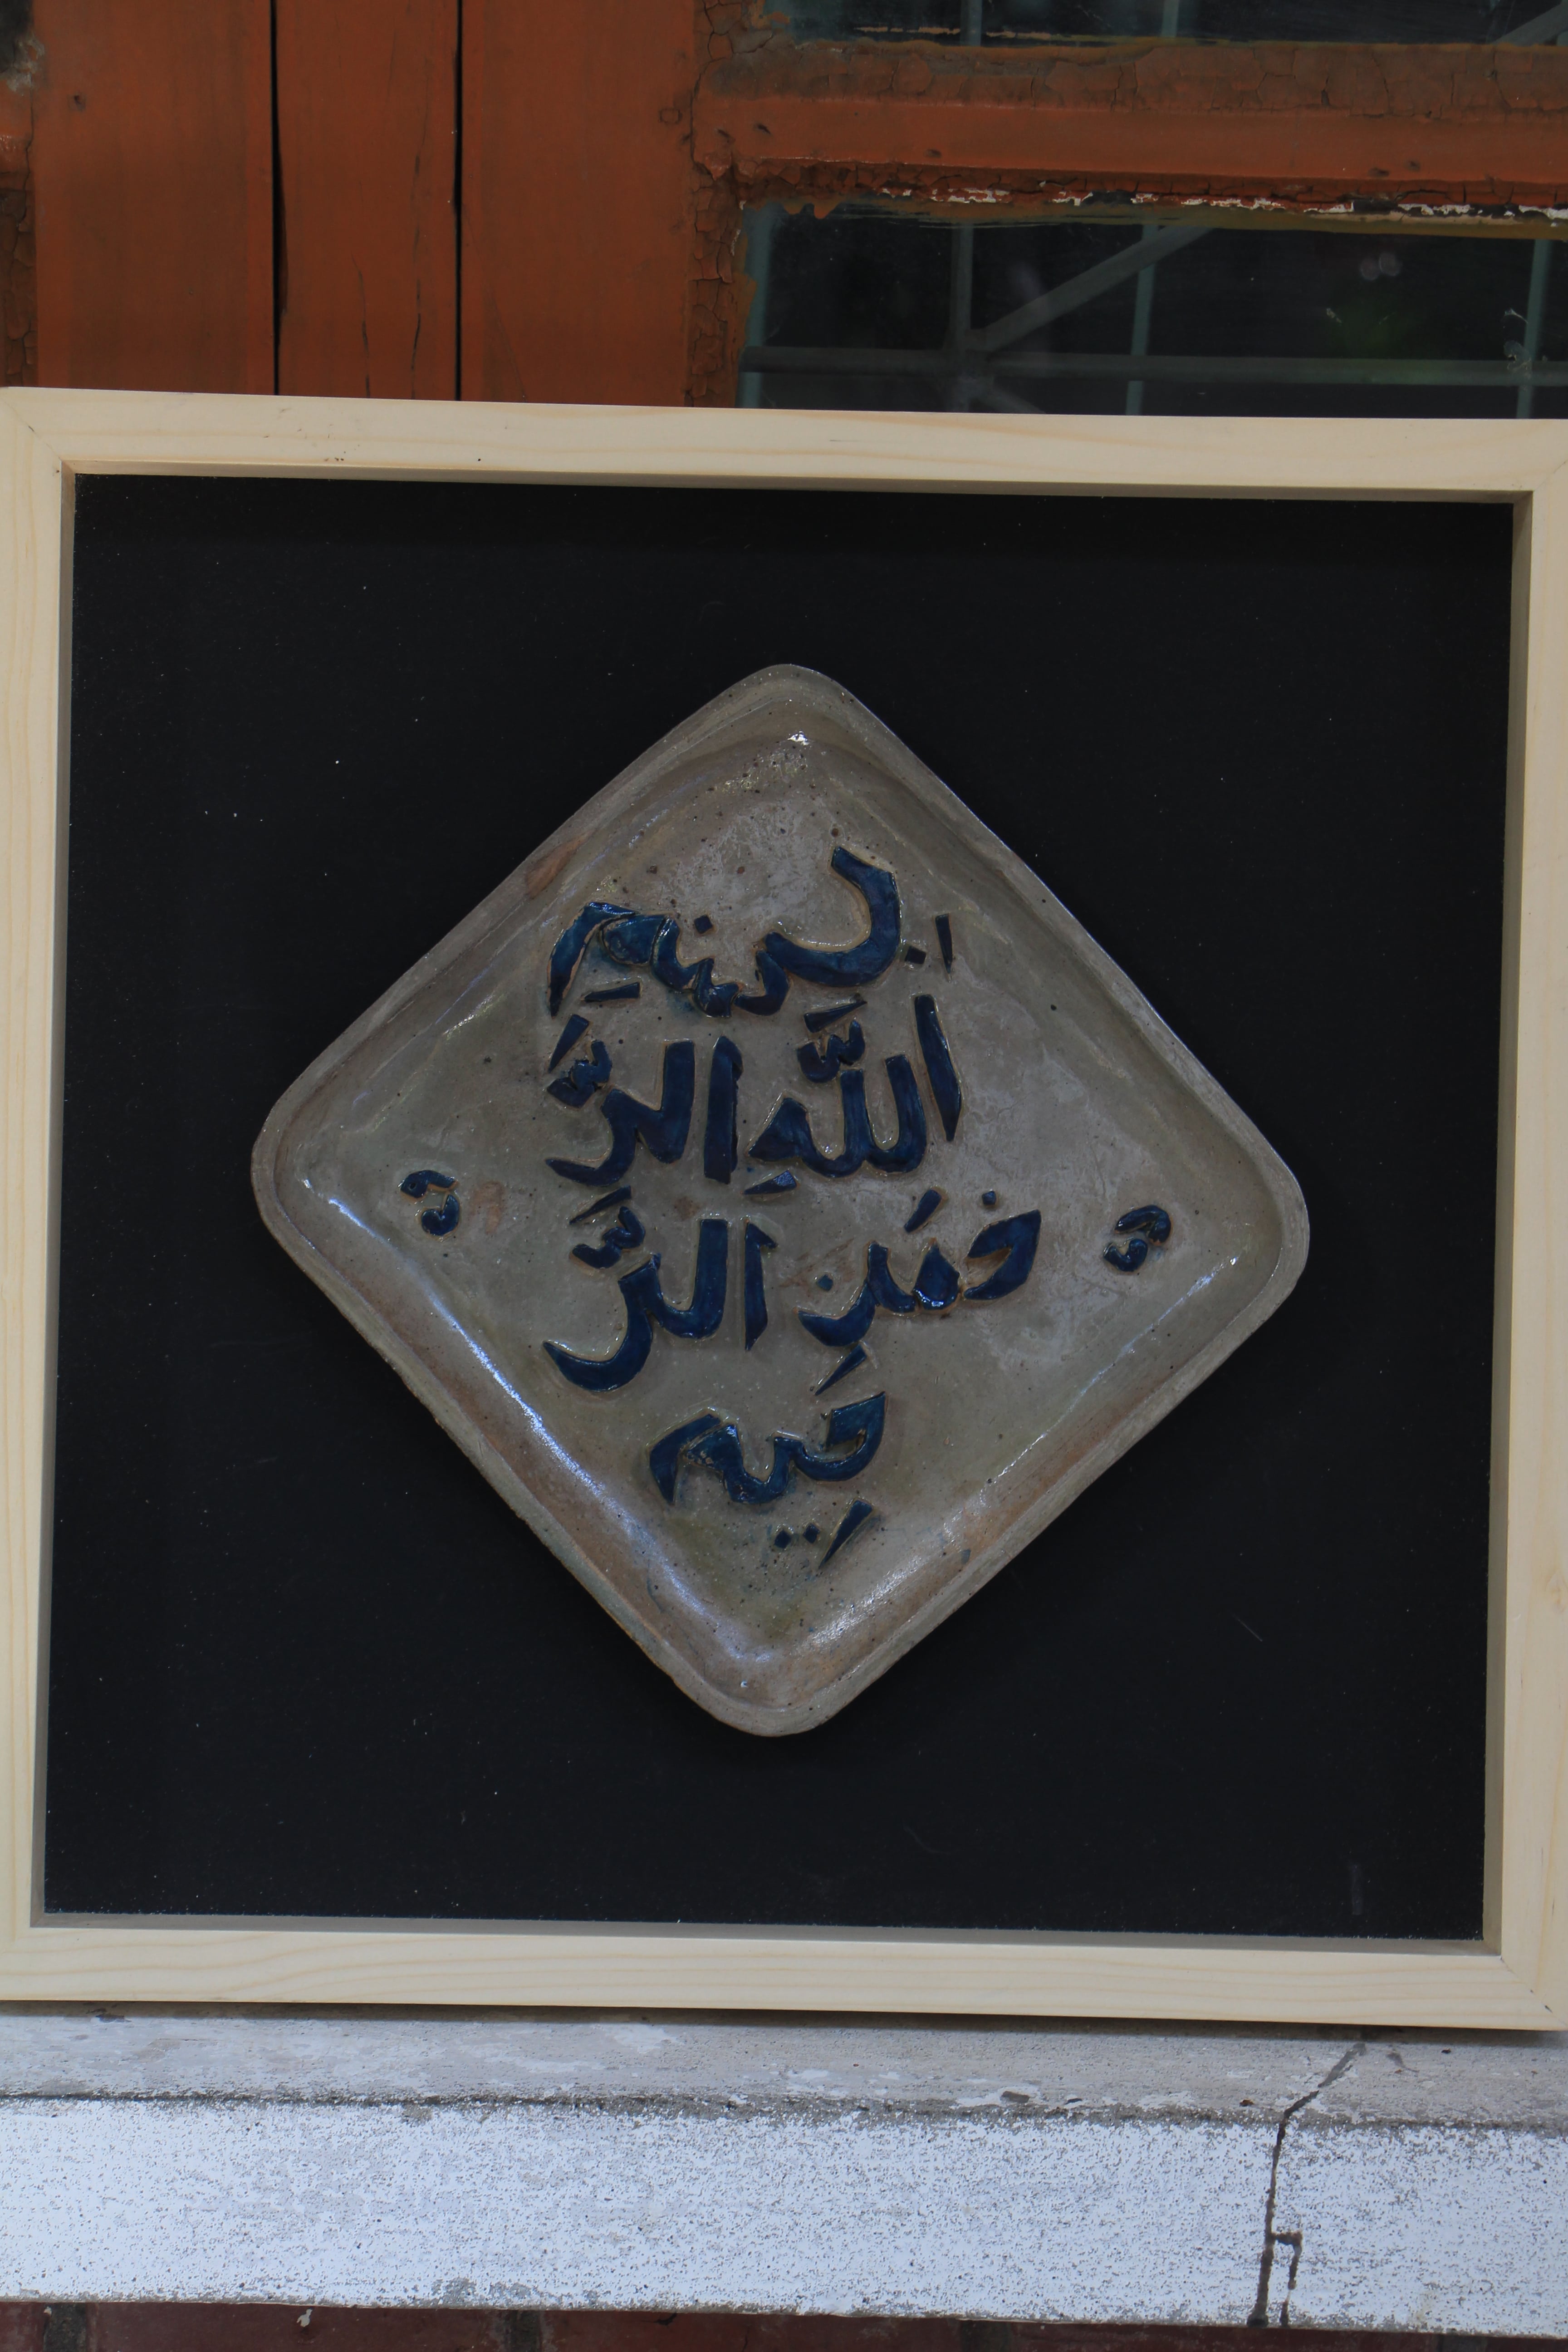 بِسْمِ
اللّٰهِ الرَّ
حْمٰنِ الرَّ
حِيم